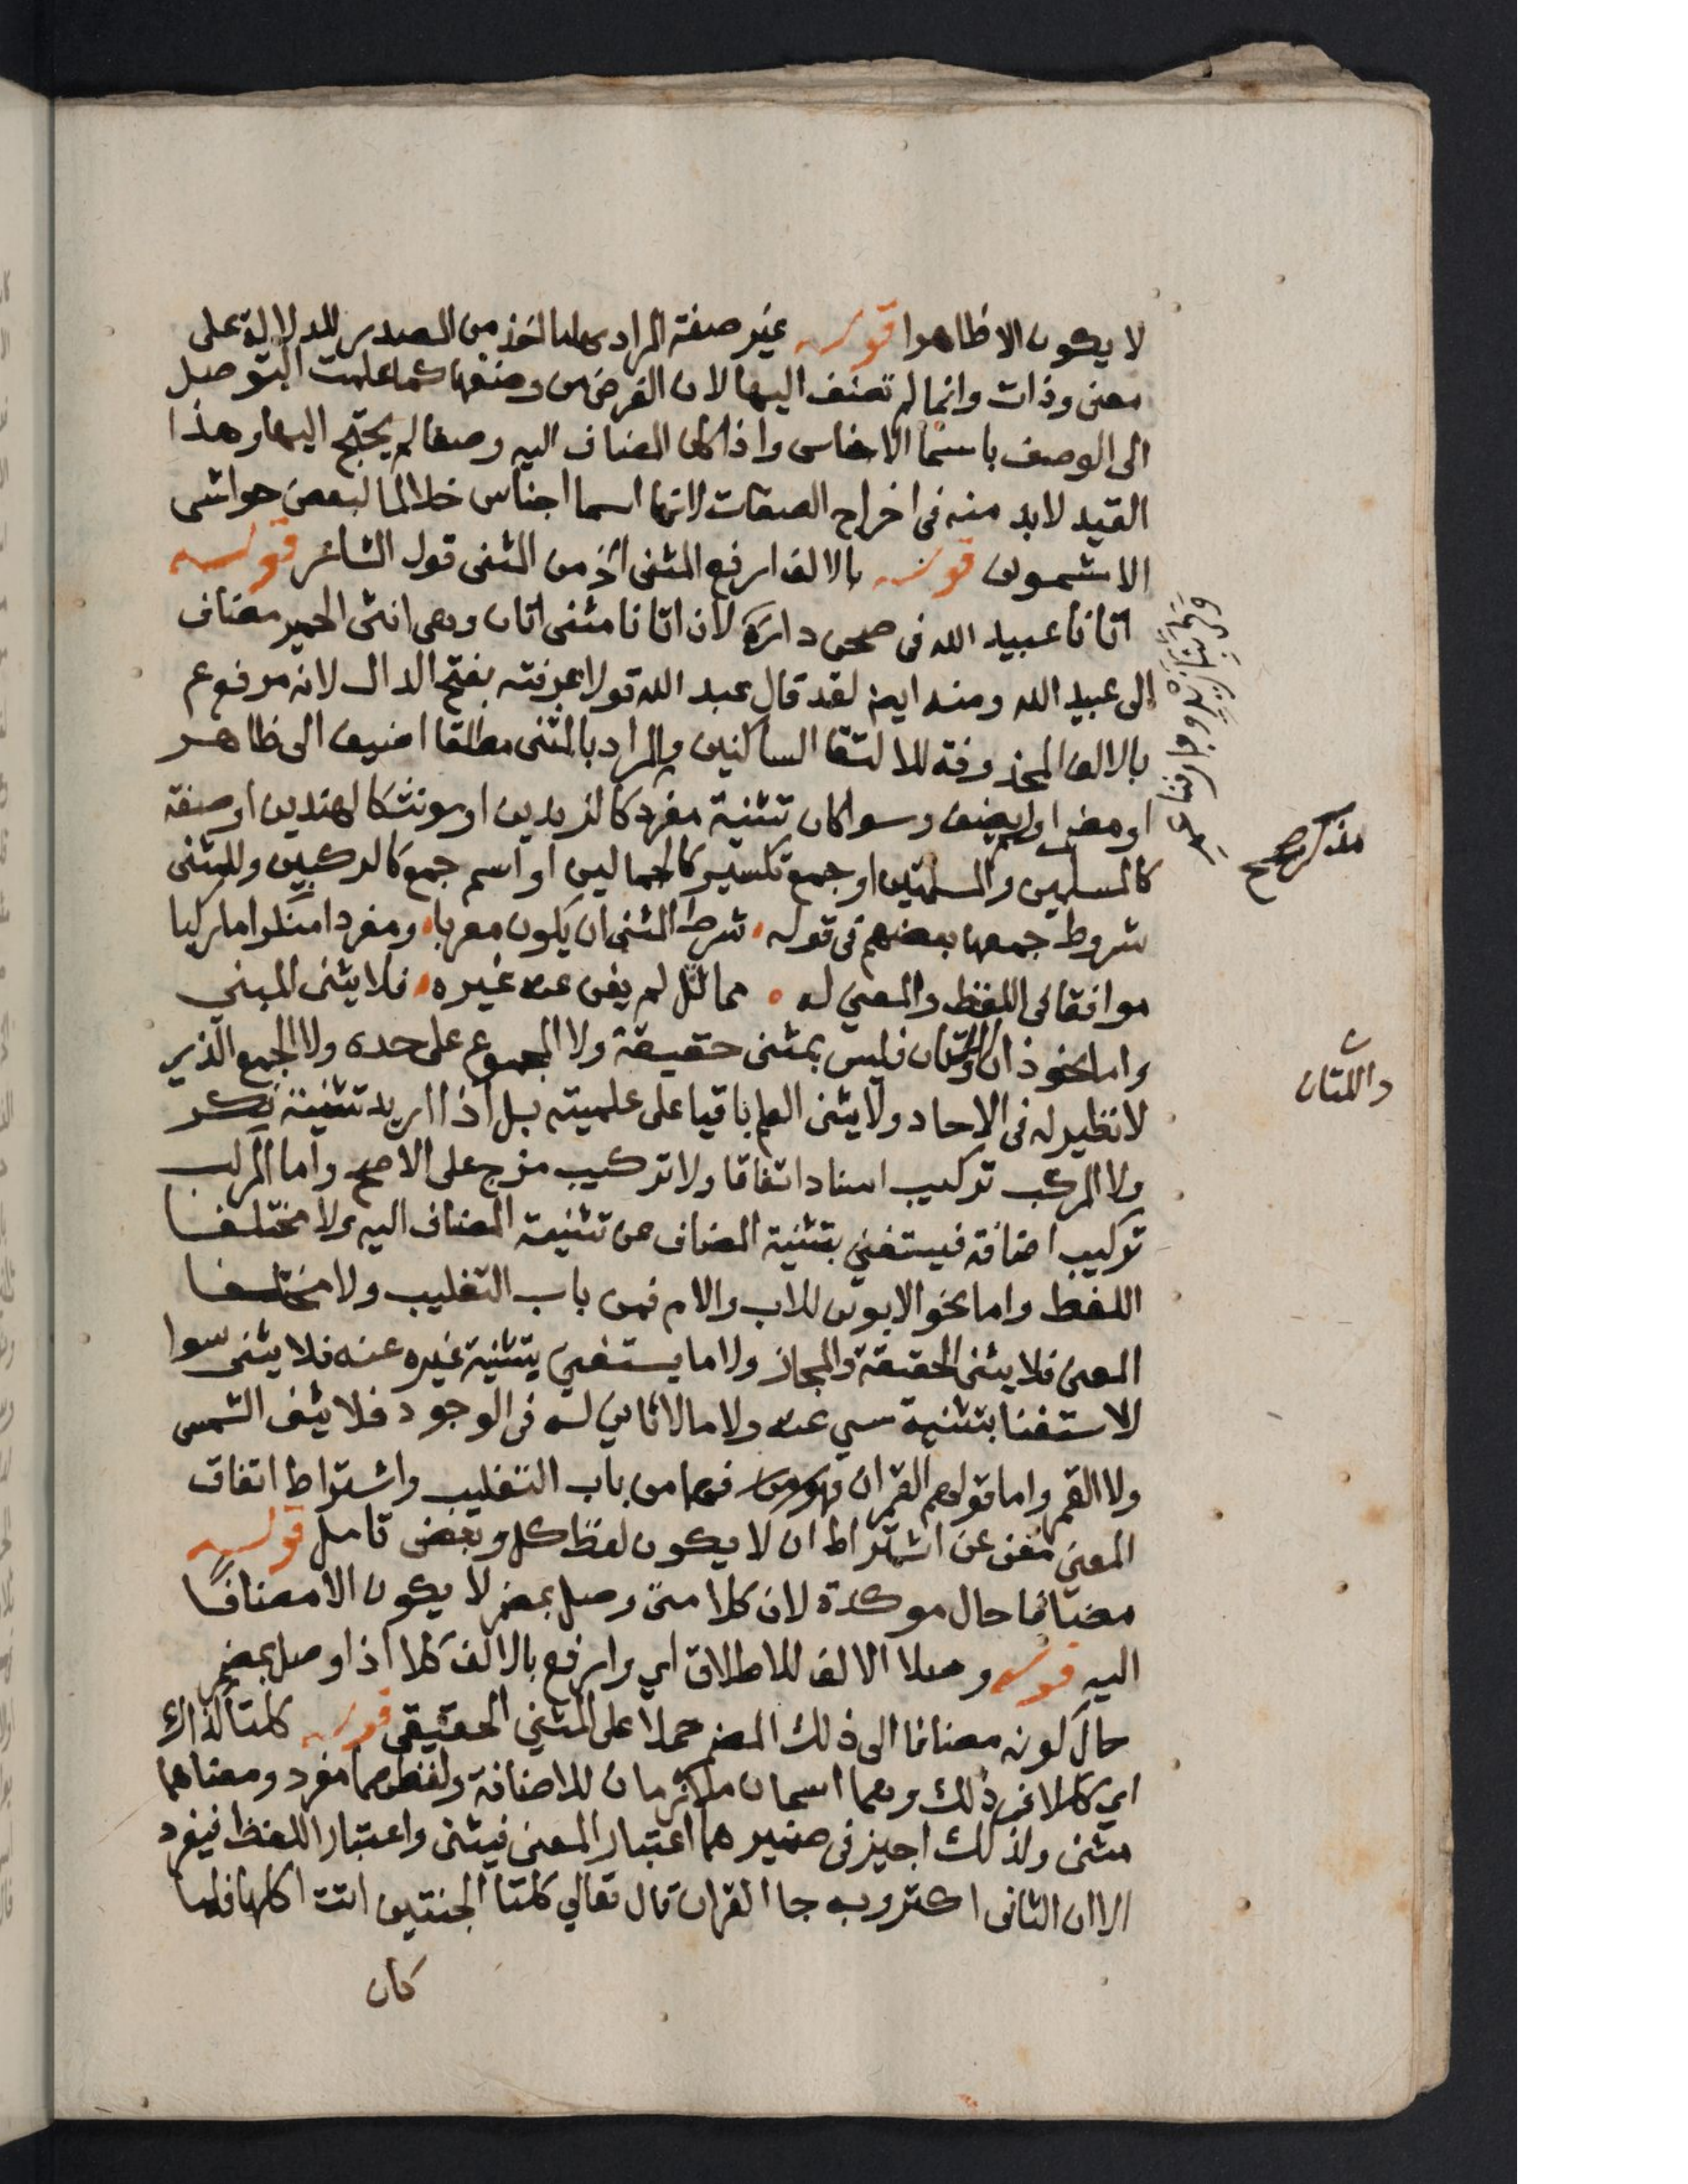 لا يكون الا ظاهرا قوله غير صفة المراد بها ما اخذ من المصدر للدلالة على
معنى وذات وانما لم تضف اليها لان الغرض من وضعها كما علمت التوصل
الى الوصف باسما الاجناس واذا كان المضاف اليه وصفا لم يحتج اليها وهذا
القيد لابد منه فى اخراج الصفات لانها اسما اجناس خلافا لبعض حواشى
الاشمونى قوله بالالف ارفع المثنى من المثنى قول الشاعر قوله
اتانا عبيد الله فى صحن داره لان اتانا مثنى اتان وهى انثى الحمير مضاف
الى عبيد الله ومنه ايضا لقد قال عبد الله قولا عرفته بفتح الدال لانه مرفوع
بالالف المحذوفة للالتقا الساكنين والمراد بالمثنى مطلقا اضيف الى ظاهر
او مضمر او لم يضف وسوا كان تثنية مفرد كالزيدين او مونث كالهندين او صفة
كالمسلمين والمسلمتين او جمع تكسير كالجمالين او اسم جمع كالركبين وللمثنى
شروط جمعها بعضهم فى قوله شرط المثنى ان يكون معربا ومفردا منكرا ما ركبا
موافقا فى اللفظ والمعنى له مماثل لم يغن عنه غيره فلا يثنى المبني
واما نحو ذان فليس بمثنى حقيقة ولا المجموع على حده ولا الجمع الذي
لا نظير له فى الاحاد ولا يثنى العلم باقيا على علميته بل اذا اريد تثنيته نكر
ولا المركب تركيب اسناد اتفاقا ولا تركيب مزج على الاصح واما المركب
تركيب اضافة فيستغني بتثنية المضاف عن تثنية المضاف اليه ولا مختلفا
اللفظ واما نحو الابوين للاب والام فمن باب التغليب ولا مختلفا
المعنى فلا يثنى الحقيقة والمجاز ولا ما يستغني بتثنية غيره عنه فلا يثنى سوا
للاستغنا بتثنية سي عنه ولا ما لا ثاني له فى الوجود فلا يثنى الشمس
ولا القمر واما قولهم القمران فهو من باب التغليب واشتراط اتفاق
المعنى مغن عن اشتراط ان لا يكون لفظ كل وبعض تامل قوله
مضافا حال موكدة لان كلا متى وصل بمضمر لا يكون الا مضافًا
اليه قوله وصلا الالف للاطلاق اي وارفع بالالف كلا اذا وصل بمضمر
حال كونه مضافا الى ذلك المضمر حملا على المثنى الحقيقى قوله كلتا كذاك
اي ككلا فى ذلك وهما اسمان ملازمان للاضافة ولفظهما مفرد ومعناهما
مثنى ولذلك اجيز فى ضميرهما اعتبار المعنى فيثنى واعتبار اللفظ فيفرد
الا ان الثانى اكثر وبه جا القران قال تعالي كلتا الجنتين اتت اكلها فلما
كان
مذكر صح
واللتان